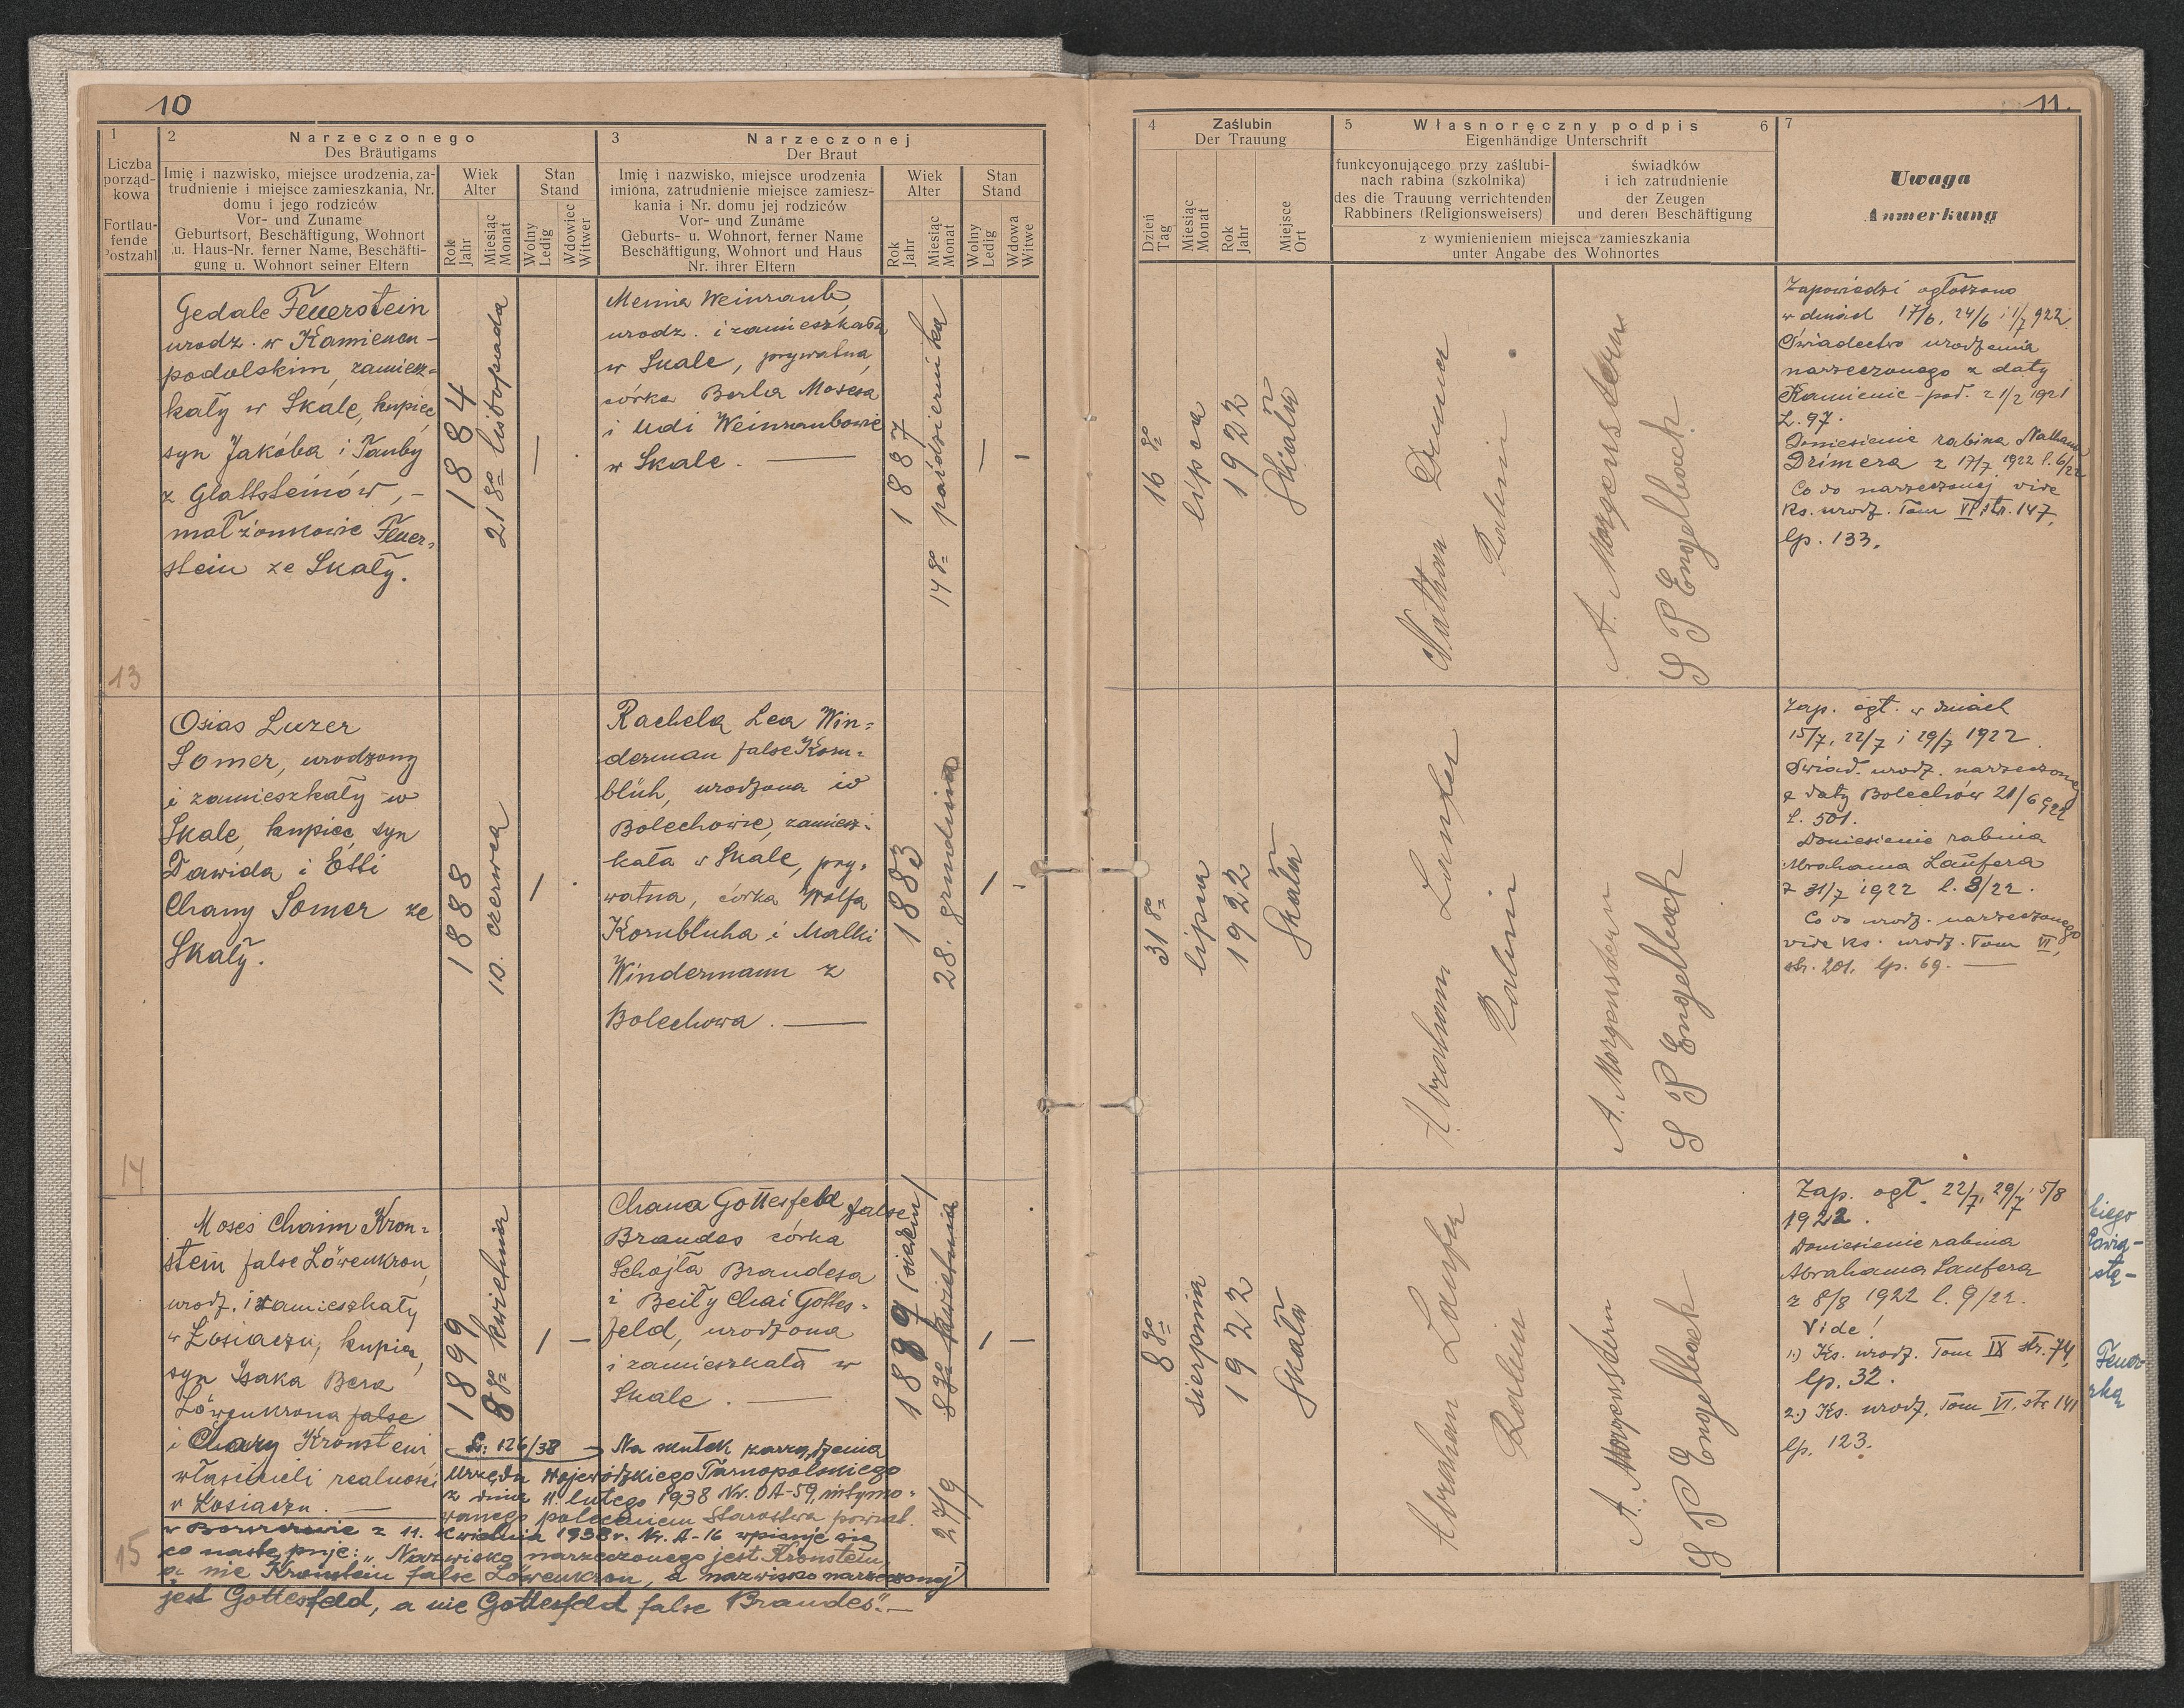 10
1
Liczba
porząd-
kowa
Fortlau-
fende
Postzahl
2
Narzeczonego
Des Bräutigams
Imię i nazwisko, miejsce urodzenia, za-
trudnienie i miejsce zamieszkania, Nr.
domu i jego rodziców
Vor- und Zuname
Geburtsort, Beschäftigung, Wohnort
u. Haus-Nr. ferner Name, Beschäfti-
gung u. Wohnort seiner Eltern
Wiek
Alter
Rok
Jahr
Miesiąc
Monat
Stan
Stand
Wolny
Ledig
Wdowiec
Witwer
3
Narzeczonej
Der Braut
Imię i nazwisko, miejsce urodzenia
imiona, zatrudnienie miejsce zamiesz-
kania i Nr. domu jej rodziców
Vor- und Zuname
Geburts- u. Wohnort, ferner Name
Beschäftigung, Wohnort und Haus
Nr. ihrer Eltern
Wiek
Alter
Rok
Jahr
Miesiąc
Monat
Stan
Stand
Wolny
Ledig
Wdowa
Witwe
Gedale Feuerstein
urodz. w Kamiencu-
podolskim, zamiesz=
kały w Skale, kupiec
syn Jakóba i Tauby
z Glattsteinów, -
małżonkowie Feuer=
stein ze Skały.
1884
21go listopada
Menia Weinraub,
urodz. i zamieszkała
w Skale, prywatna,
córka Berla Mosesa
i Udi Weinraubowie
w Skale. —
1887
14go października
13
Osias Luzer
Somer, urodzony
i zamieszkały w
Skale, kupiec, syn
Dawida i Etti
Chany Somer ze
Skały.
1888
10. czerwca
Rachela Lea Win=
derman false Korn=
blüh, urodzona w
Bolechowie, zamiesz=
kała w Skale, pry=
watna, córka Wolfa
Kornblüha i Malki
Windermann z
Bolechowa. —
1883
28. grudnia
14
Moses Chaim Kron=
stein false Löwenkron,
urodz. i zamieszkały
w Łosiaczu, kupiec,
syn Isaka Bera
Löwenkrona false
i Chary Kronstein
właścicieli realności
w Łosiaczu. —
1899
8go kwietnia
Chana Gottesfeld false
Brandes córka
Schojła Brandesa
i Beily Chai Gottes=
feld, urodzona
i zamieszkała w
Skale. —
1889 /
8go kwietnia
27/9
L: 126/38 — Na skutek zarządzenia
Urzędu Wojewódzkiego Tarnopolskiego
z dnia 11. lutego 1938 Nr. OA-59, intymo=
wanego poleceniem Starostwa powiat.
w Borszczowie z 11. kwietnia 1938 r. Nr. A-16 wpisuje się
co następuje: „Nazwisko narzeczonego jest Kronstein,
a nie Kronstein false Löwenkron, a nazwisko narzeczonej
jest Gottesfeld, a nie Gottesfeld false Brandes". —
15
11.
4
Zaślubin
Der Trauung
Dzień
Tag
Miesiąc
Monat
Rok
Jahr
Miejsce
Ort
5
Własnoręczny podpis
6
Eigenhändige Unterschrift
funkcyonującego przy zaślubi-
nach rabina (szkolnika)
des die Trauung verrichtenden
Rabbiners (Religionsweisers)
świadków
i ich zatrudnienie
der Zeugen
und deren Beschäftigung
z wymienieniem miejsca zamieszkania
unter Angabe des Wohnortes
7
Uwaga
Anmerkung
16go
lipca
1922
Skała
Nathan Drimer
Rabin
A. Morgenstern
S P Engelbach
Zapowiedzi ogłoszono
w dniach 17/6, 24/6 i 1/7 922.
Świadectwo urodzenia
narzeczonego z daty
Kamienic-pod. z 1/2 1921
L. 97.
Doniesienie rabina Nathana
Drimera z 17/7 1922 l. 6/22
Co do narzeczonej vide
Ks. urodz. Tom VI, str. 147,
lp. 133.
31go
lipca
1922
Skała
Abraham Laufer
Rabin
A. Morgenstern
S P Engelbach
Zap. ogł. w dniach
15/7, 22/7 i 29/7 1922.
Świad. urodz. narzeczonej
z daty Bolechów 21/6 922
L. 501.
Doniesienie rabina
Abrahama Laufera
z 31/7 1922 l. 8/22.
Co do urodz. narzeczonego
vide Ks. urodz. Tom VI,
str. 201, lp. 69. —
8go
sierpnia
1922
Skała
Abraham Laufer
Rabin
A. Morgenstern
S P Engelbach
Zap. ogł. 22/7, 29/7, 5/8
1922.
Doniesienie rabina
Abrahama Laufera
z 8/8 1922 l. 9/22.
Vide!
1.) Ks. urodz. Tom IX str. 74,
lp. 32.
2.) Ks. urodz. Tom VI, str. 141
lp. 123.